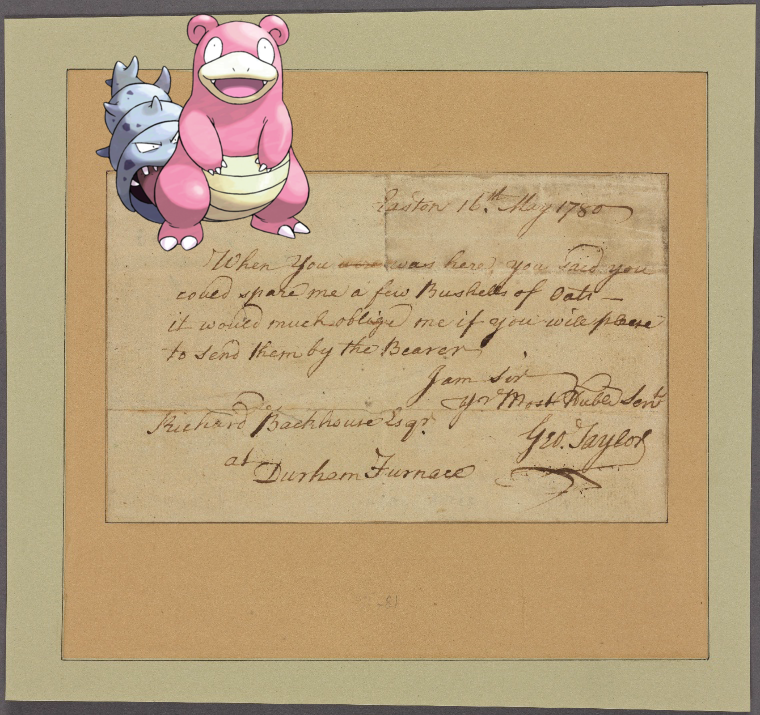 Easton 16.th May 1780
When You were was here, you said you
could spare me a few Bushells of Oats —
it would much oblige me if you will please
to Send them by the Bearer
I am Sir
yr. Most Huble Servt
Richard Backhouse Esqr.
Geo. Taylor
at Durham Furnace